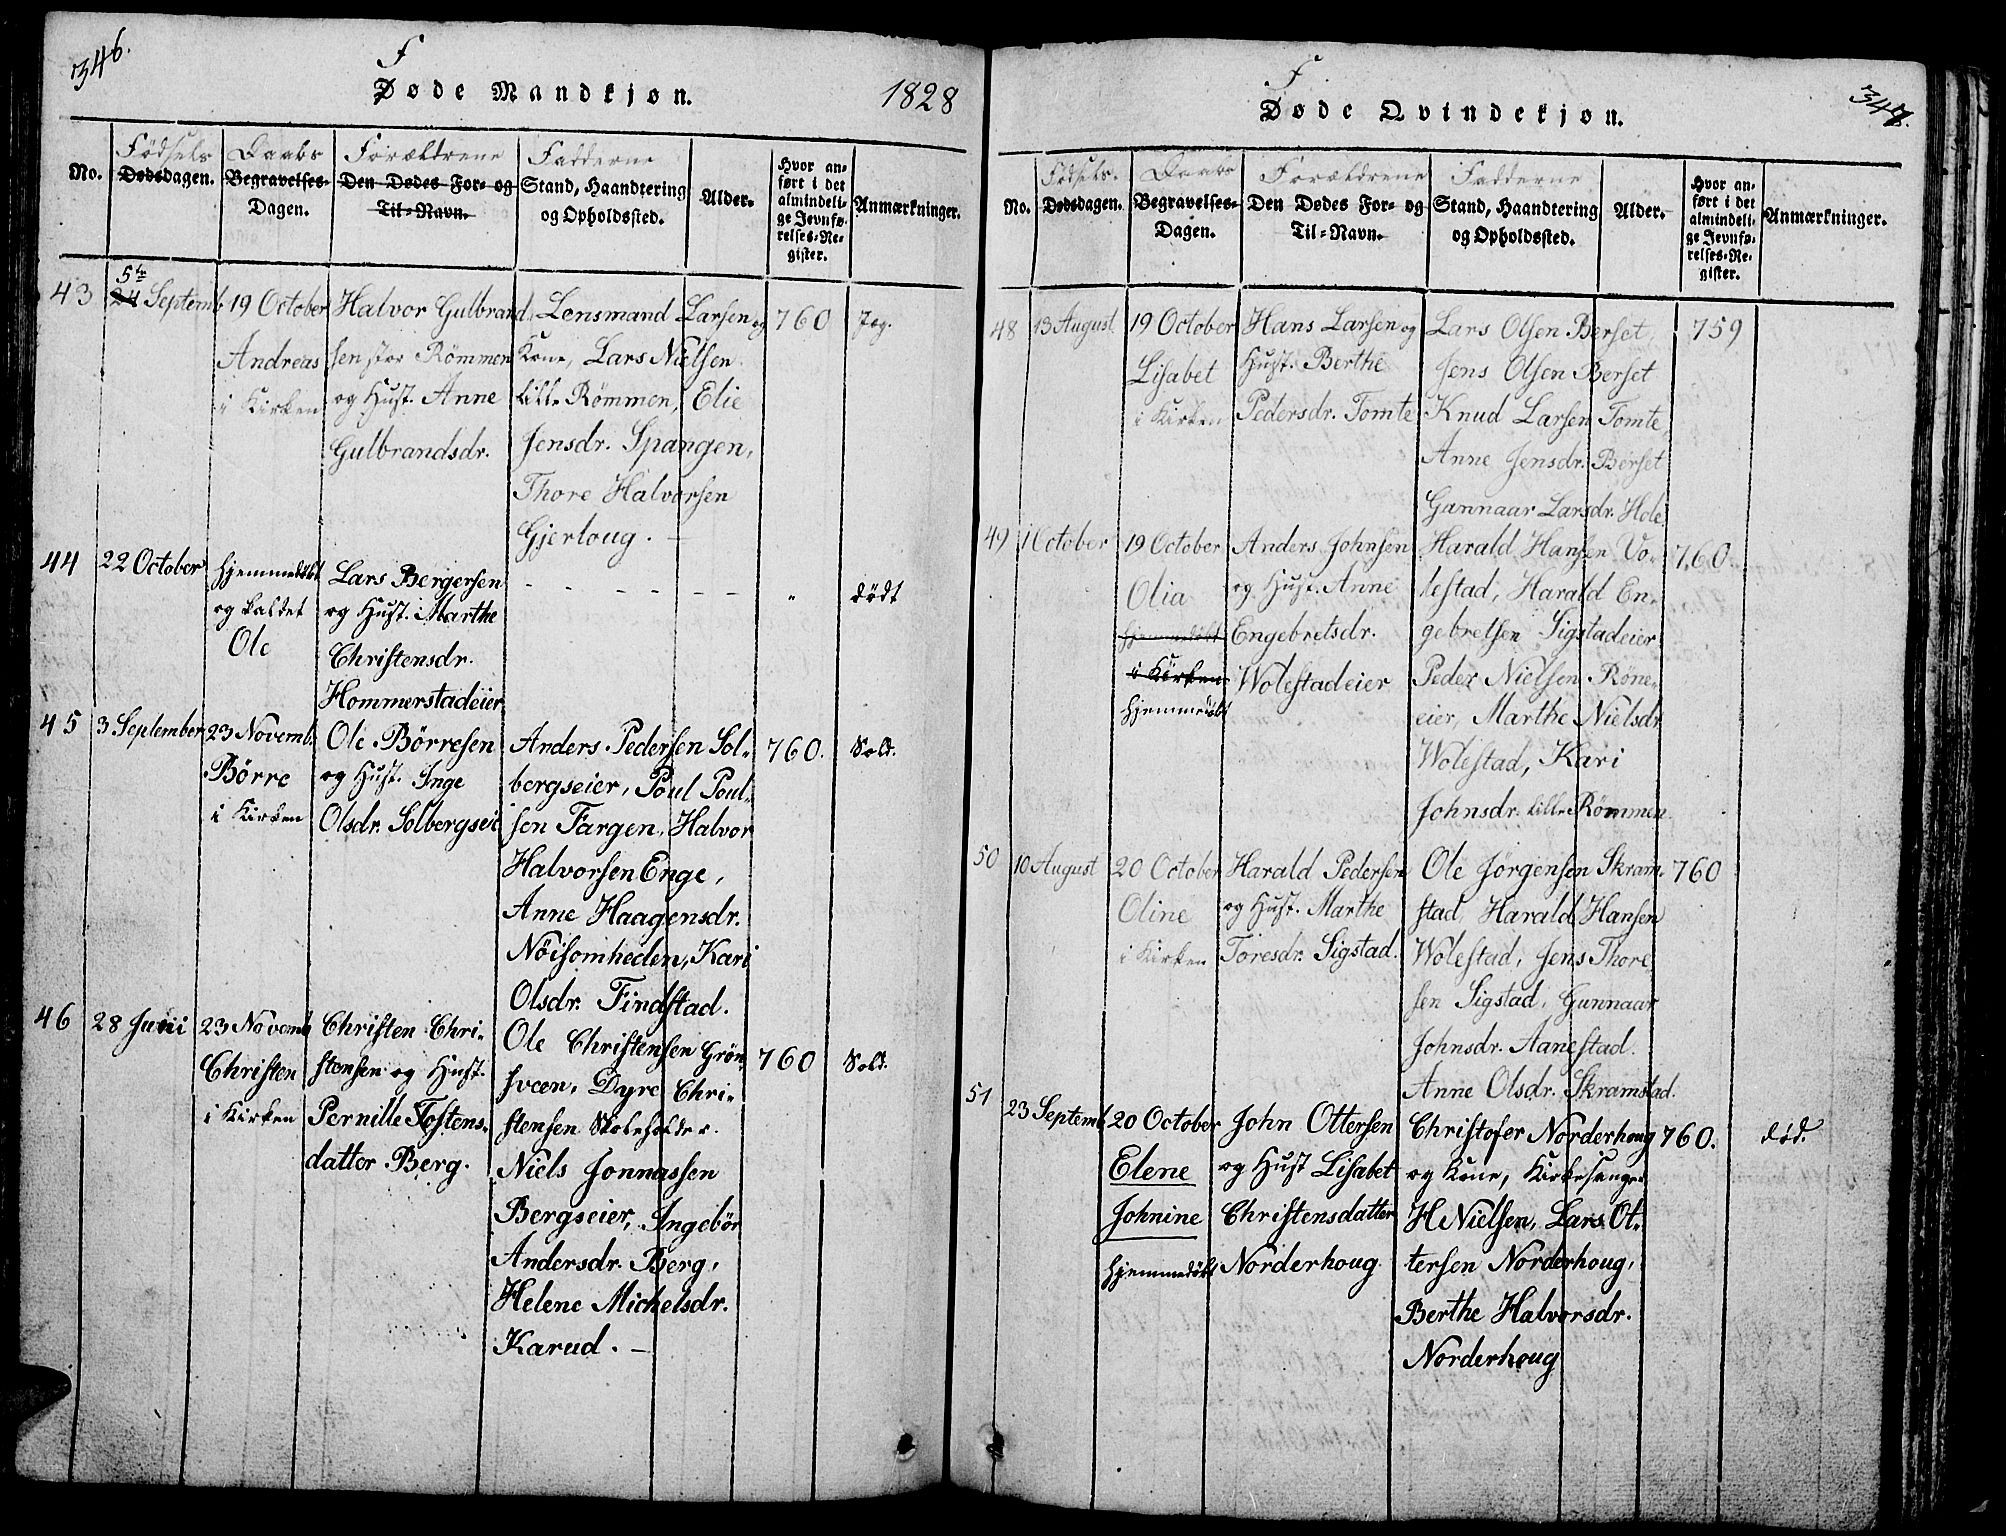 346.
F
Døde Mandkjøn.
1828
No.
Födsels
Dødsdagen.
Daabs
Begravelses-
Dagen.
Forældrene
Den Dødes For- og
Til-Navn.
Fadderne
Stand, Haandtering
og Opholdssted.
Alder.
Hvor an-
ført i det
almindeli-
ge Jevnfø-
relses-Re-
gister.
Anmærkninger.
43
5te
24 Septemb.
19 October
Andreas
i Kirken
Halvor Gulbrand-
sen stor Römmen
og Hust. Anne
Gulbrandsdr.
Lensmand Larsen og
Kone, Lars Nielsen
lille Römmen, Elie
Jensdr. Spangen,
Thore Halvorsen
Gjerloug. –
760
Jæg.
44
22 October
hjemmedöbt
og kaldet
Ole
Lars Bergersen
og Hust. Marthe
Christensdr.
Hommerstadeier
- - - - - -
"
dödt
45
3 September
23 Novemb.
Börre
i Kirken
Ole Börresen
og Hust. Inge
Olsdr. Solbergseie
Anders Pedersen Sol-
bergseier, Poul Poul-
sen Fargen, Halvor
Halvorsen Enge,
Anne Haagensdr.
Nöisomheden, Kari
Olsdr. Findstad.
760.
Sold.
46
28 Junii
23 Novemb
Christen
i Kirken
Christen Chri-
stensen og Hust.
Pernille Tostens-
datter Berg.
Ole Christensen Grön
sveen, Dyre Chri-
stensen Skoleholder.
Niels Jonnassen
Bergseier, Ingebör
Andersdr. Berg,
Helene Michelsdr.
Karud. –
760
Sold.
347.
F
Døde Qvindekjøn.
No.
Födsels.
Dødsdagen.
Daabs
Begravelses-
Dagen.
Forældrene
Den Dødes For- og
Til-Navn.
Fadderne
Stand, Haandtering
og Opholdssted.
Alder.
Hvor an-
ført i det
almindeli-
ge Jevnfø-
relses-Re-
gister.
Anmærkninger.
48
13 August
19 October
Lisabet
i Kirken
Hans Larsen og
Hust. Berthe
Pedersdr. Tomte
Lars Olsen Berset,
Jens Olsen Berset
Knud Larsen Tomte
Anne Jensdr. Berset
Gannaar Larsdr. Hole
759
49
1 October
19 October
Olia
hjemmedöbt
i Kirken
hjemmedöbt
Anders Johnsen
og Hust. Anne
Engebretsdr.
Wolestadeier
Harald Hansen Vo-
lestad, Harald En-
gebretsen Sigstadeier
Peder Nielsen Röne-
eier, Marthe Nielsdr
Wolestad, Kari
Johnsdr. lille Römmen
760.
50
10 August
20 October
Oline
i Kirken
Harald Pedersen
og Hust. Marthe
Toresdr. Sigstad.
Ole Jörgensen Skram-
stad, Harald Hansen
Wolestad, Jens Thore
sen Sigstad, Gunnaar
Johnsdr. Aanestad.
Anne Olsdr. Skramstad.
760
51
23 Septemb.
20 October
Elene
Johnine
hjemmedöbt
John Ottersen
og Hust Lisabet
Christensdatter
Norderhoug.
Christofer Norderhoug
og Kone, Kirkesanger
H. Nielsen, Lars Ot-
tersen Norderhoug,
Berthe Halvorsdr.
Norderhoug
760.
död.